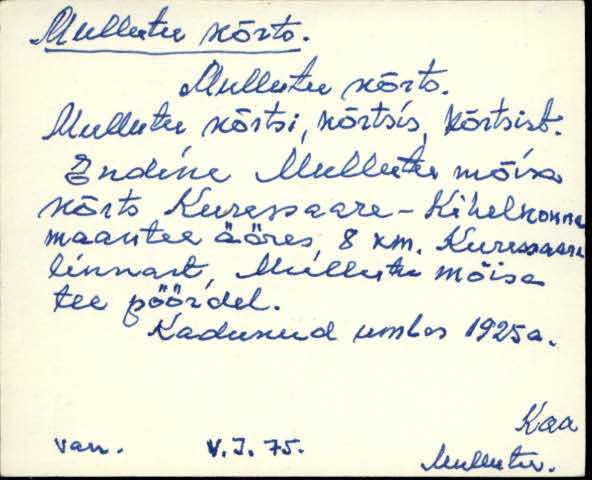 Mullutu kõrts.
Mullutu kõrts.
Mullutu kõrtsi, kõrtsis, kõrtsist.
Endine Mullutu mõisa
kõrts Kuressaare-Kihelkonna
maantee ääres, 8 km. Kuressaare
linnast, Mullutu mõisa
tee pöördel.
Kadunud umbes 1925a.
Kaa
van. V.I.75. Mullutu.